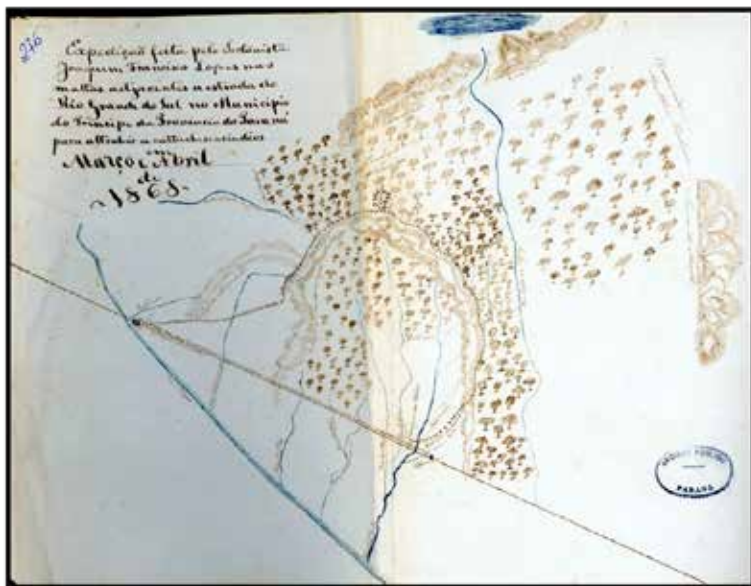 236
Expedição feita pelo Sertanista
Joaquim Francisco Lopes nas
mattas adjacentes a estrada do
Rio Grande do Sul no Municipio
do Principe da Provincia do Paraná
para attrahir a catechese indios
em
Março e Abril
de
1868.
PUBLICO
PARANÁ